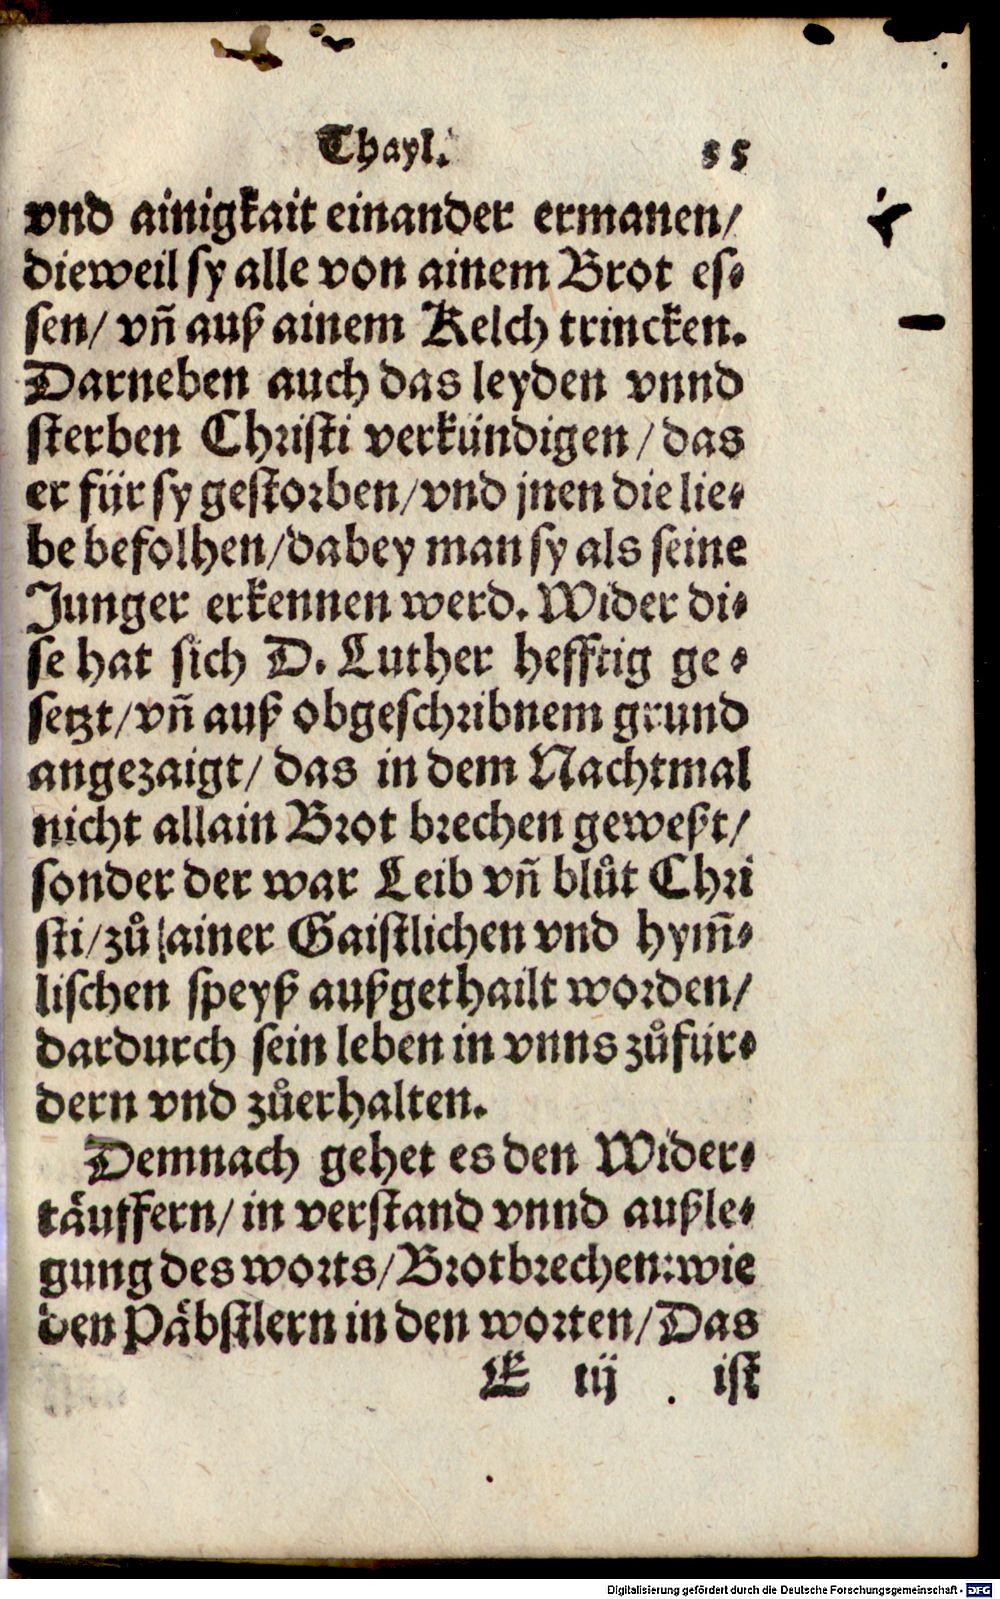 Thayl. 35
vnd ainigkait einander ermanen/
dieweil sy alle von ainem Brot es⸗
sen/ vñ auß ainem Kelch trincken.
Darneben auch das leyden vnnd
sterben Christi verkündigen/ das
er für sy gestorben/ vnd jnen die lie⸗
be befolhen/ dabey man sy als seine
Junger erkennen werd. Wider di⸗
se hat sich D. Luther hefftig ge⸗
setzt/ vñ auß obgeschribnem grund
angezaigt/ das in dem Nachtmal
nicht allain Brot brechen geweßt/
sonder der war Leib vñ blůt Chri
sti/ zů ainer Gaistlichen vnd hym̃⸗
lischen speyß außgethailt worden/
dardurch sein leben in vnns zůfür⸗
dern vnd zůerhalten.
Demnach gehet es den Wider⸗
täuffern/ in verstand vnnd außle⸗
gung des worts/ Brotbrechen: wie
den Päbstlern in den worten/ Das
E iij ist
Digitalisierung gefördert durch die Deutsche Forschungsgemeinschaft - DFG